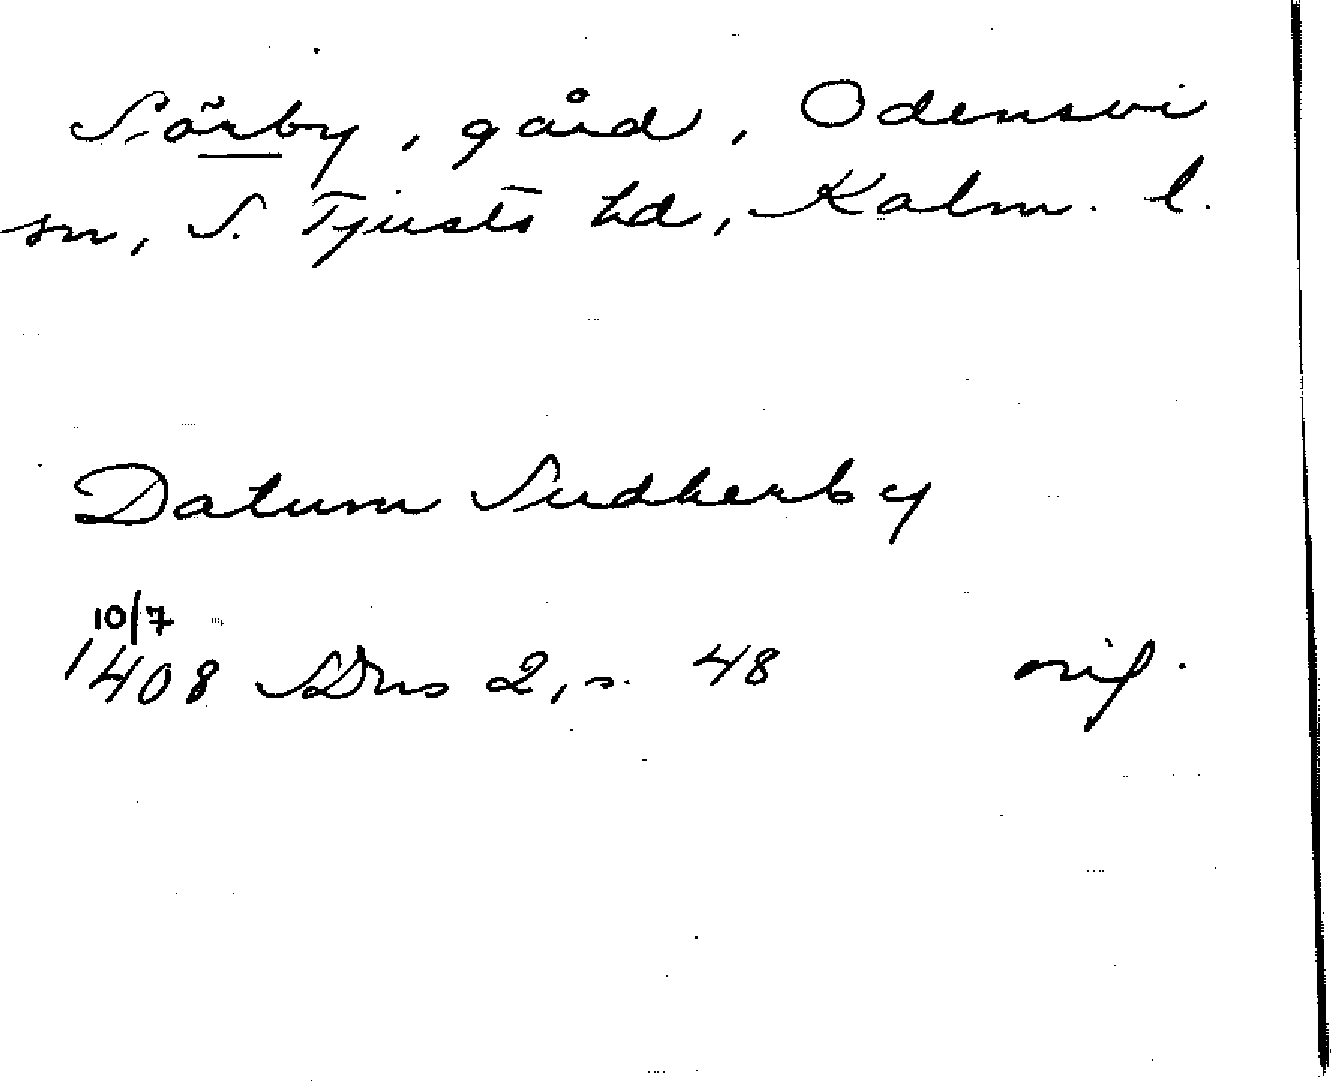 Sörby, gård, Odensvi
sn, S. Tjusts hd, Kalm. l.
Datum Sudherby
10/7
1408 SDns 2, s. 48 orig.